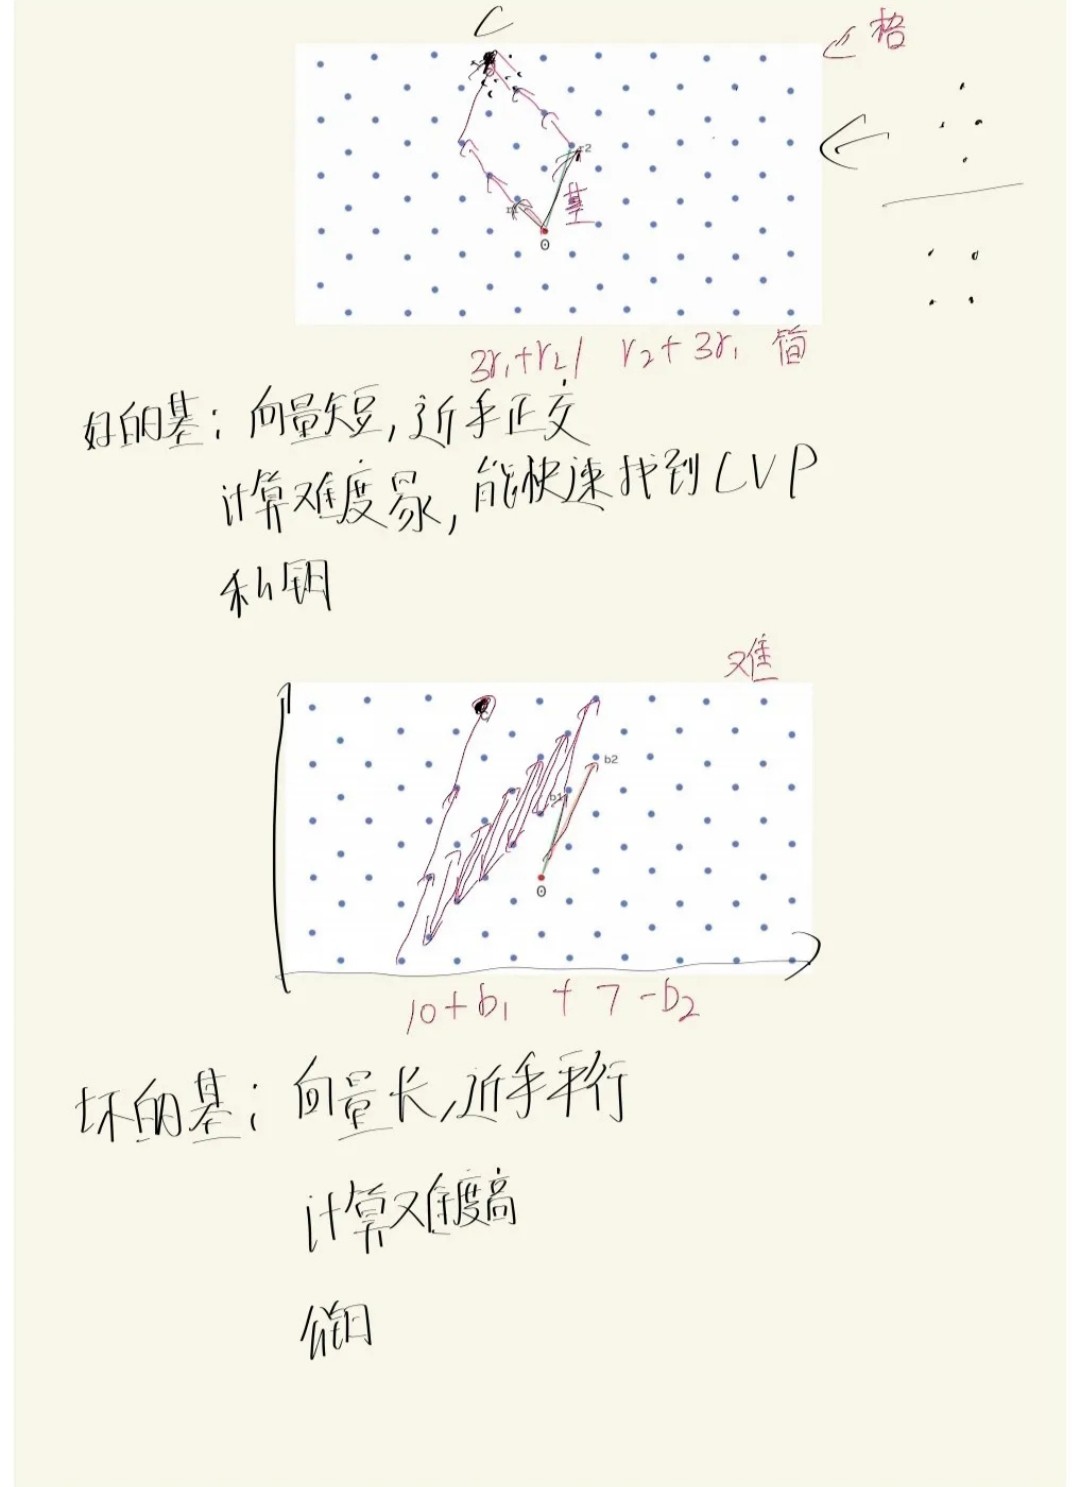 C
格
r2
r1
基
0
3r₁+r₂/ r₂+3r₁ 简
好的基：向量短，近乎正交
计算难度易，能快速找到CVP
私钥
难
b2
b1
0
10+b₁ + 7-b₂
坏的基：向量长，近乎平行
计算难度高
公钥